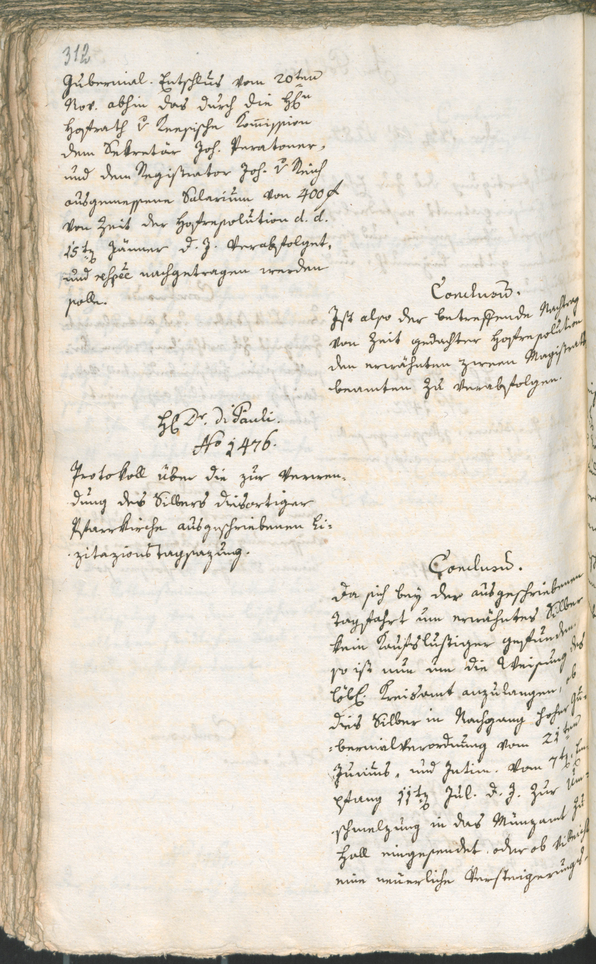 312
Gubernial-Entschluß vom 20ten
Nov. abhin das durch die H
Hofrath v Keesische Kommission
dem Sekretär Joh. Peratoner,
und dem Registrator Joh. v Reich
ausgemessene Salarium von 400 f
von Zeit der Hofresolution d. d.
15tz Jänner d. J. verabfolget,
und nachgetragen werden
solle.
Conclusum.
Ist also der betreffende Nachtrag
von Zeit gedachter Hofresolution
den erwähnten zween Magistrats
beamten zu verabfolgen.
H Dr. di Pauli.
No 1476.
Protokoll über die zur Verwen-
dung des Silbers diesortiger
Pfarrkirche ausgeschriebenen Li-
zitazionstagsazung.
Conclusum.
Da sich bey der ausgeschriebenen
Tagsfahrt um erwähntes Silber
kein Kaufslustiger gefunden,
so ist nun um die Weisung des
löbl. Kreisamt anzulangen, ob
dies Silber in Nachgang hoher Gu-
bernialverordnung vom 21ten
Junius, und Intim. vom 7tz, Em-
pfang 11tz Jul. d. J. zur Um-
schmelzung in das Münzamt zu
Hall eingesendet, oder ob
eine neuerliche Versteigerungs-